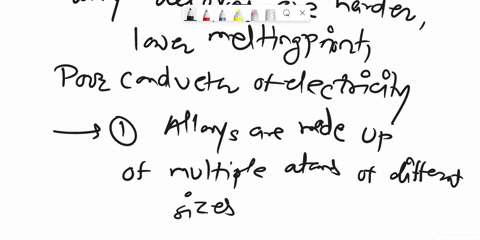 are harder,
lower meltingpoint,
Poor conductor of electricity
→ ① Alloys are made up
of multiple atoms of different
sizes